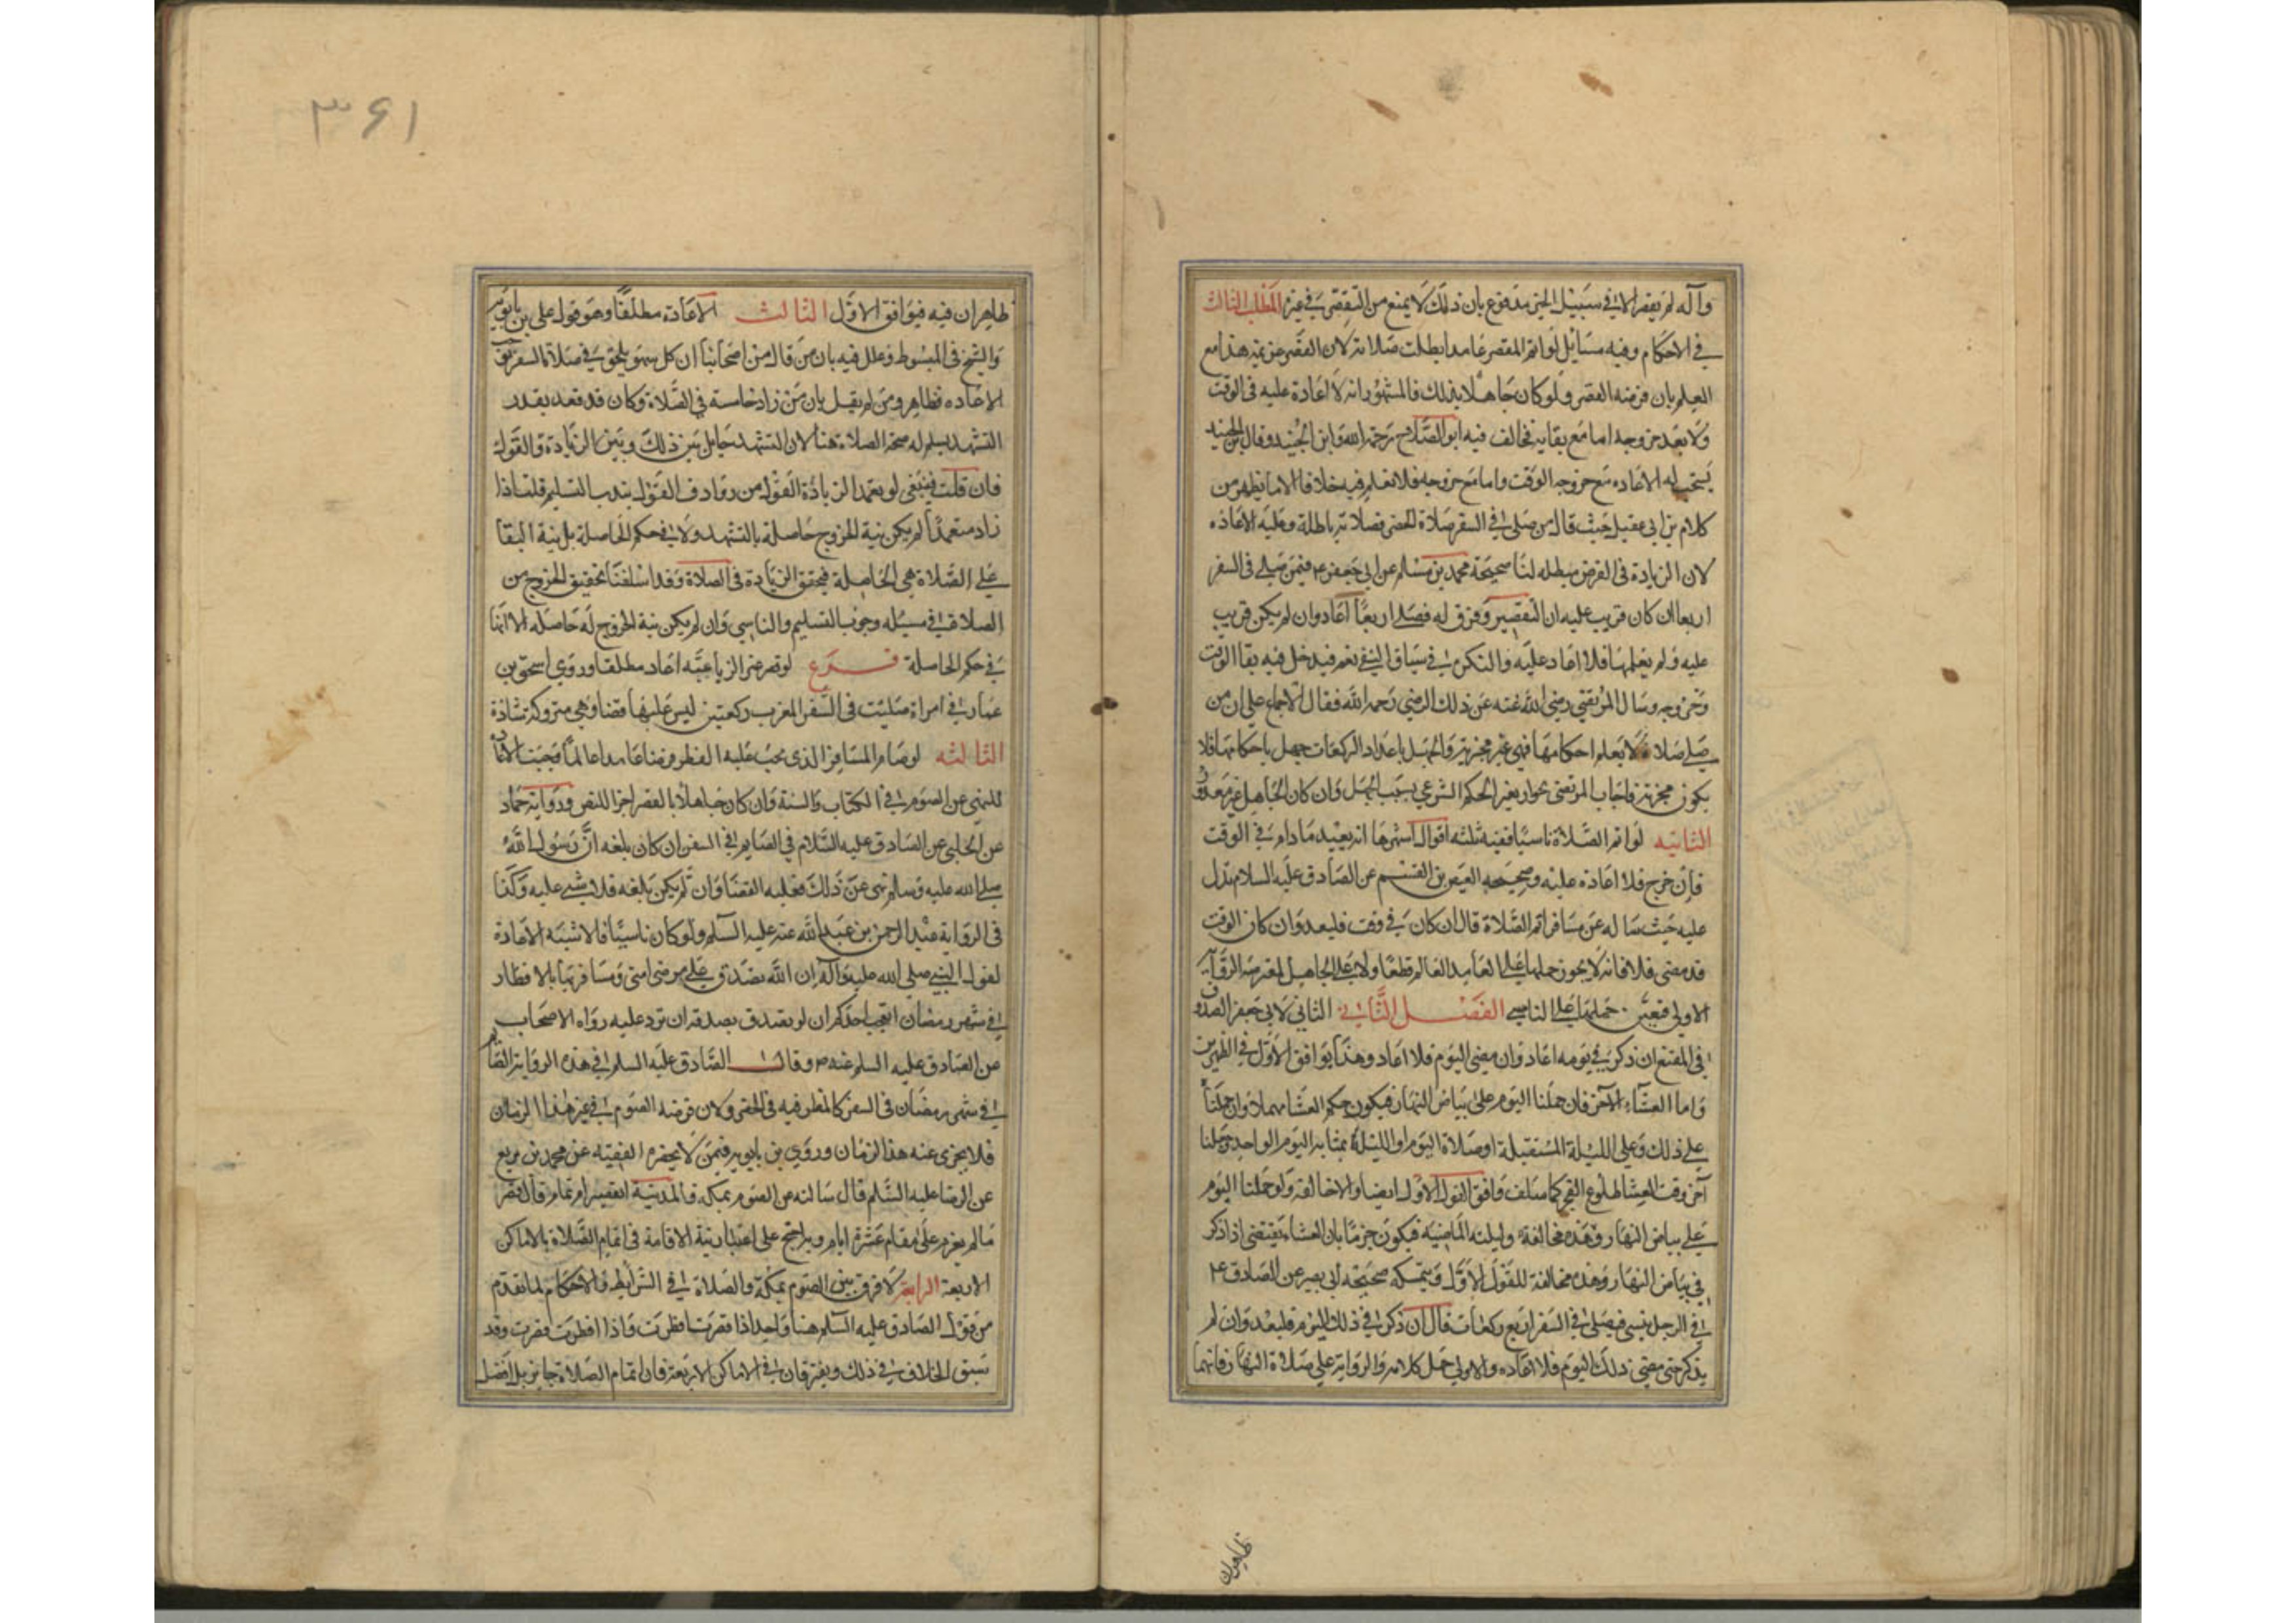 وآله لم يقصر الا في سبيل الحج مدفوع بان ذلك لا يمنع من التقصير في غيره المطلب الثالث
في الاحكام وفيه مسايل لو اتم المقصر عامدا بطلت صلاته لان القصر عزيمة هذا مع
العلم بان فرضه القصر ولو كان جاهلا بذلك فالمشهور انه لا اعادة عليه في الوقت
ولا بعد خروجه اما مع بقايه فخالف فيه ابو الصلاح رحمه الله وابن الجنيد وقال ابن الجنيد
يستحب له الاعاده مع خروجه الوقت واما مع خروجه فلا نعلم فيه خلافا الا ما يظهر من
كلام بن ابي عقيل حيث قال من صلى في السفر صلاة الحضر فصلاته باطلة وعليه الاعاده
لان الزيادة في الفرض مبطله لنا صحيحة محمد بن مسلم عن ابي جعفر ع فيمن صلى في السفر
اربعا ان كان قريب عليه اية التقصير وفرق له فصلى اربعا اعاد وان لم يكن قريب
عليه ولم يعلمها فلا اعاد عليه والنكرة في سياق النفي تعم فيدخل فيه بقا الوقت
وخروجه وسال المرتضى رضي الله عنه عن ذلك الرضي رحمه الله فقال الاجماع على ان من
صلى صلاة لا يعلم احكامها فهي غير مجزية والجهل باعداد الركعات جهل باحكامها فلا
يكون مجزية فاجاب المرتضى بجواز تغير الحكم الشرعي بسبب الجهل وان كان الجاهل غير معذور
الثانيه لو اتم الصلاة ناسيا ففيه ثلثه اقوال اشهرها انه يعيد مادام في الوقت
فان خرج فلا اعادة عليه وصحيحه العيص بن القسم عن الصادق عليه السلام تدل
عليه حيث ساله عن مسافر اتم الصلاة قال ان كان في وقت فليعد وان كان الوقت
قد مضى فلا فانه لا يجوز حملها على العامد العالم قطعا ولا على الجاهل لمقدمه الرواية
الاولى فتعين حملها على الناسي الفصل الثاني الثاني لابي جعفر الصدوق
في المقنع ان ذكر في يومه اعاد وان مضى اليوم فلا اعاد وهذا يوافق الاول في الظهرين
واما العشاء الآخر فان حملنا اليوم على بياض النهار فيكون حكم العشا مهملا وان حملنا
على ذلك وعلى الليلة المستقبلة او صلاة اليوم او الليلة بمثابه اليوم الواحد وجعلنا
آخر وقت العشا طلوع الفجر كما سلف وافق القول الاول ايضا والا خالفه ولو حملنا اليوم
على بياض النهار وهذه مخالفة وليلته الماضيه فيكون جزما بان العشاء يقتضى اذا ذكر
في بياض النهار وهذه مخالفة للقول الاول ويتمسكه صحيحه ابي بصير عن الصادق ع
في الرجل ينسى فيصلى في السفر اربع ركعات قال ان ذكر في ذلك اليوم فليعد وان لم
يذكر حتى مضى ذلك اليوم فلا اعاده والاولى حمل كلامه والرواية على صلاة النهار فانهما
ظاهران
٣٤١
ظاهران فيه فيوافق الاول الثالث الاعادة مطلقا وهو قول علي بن بابويه
والشيخ في المبسوط وعلل فيه بان من قال من اصحابنا ان كل سهو يلحق في صلاة السفر يوجب
الاعاده فظاهر ومن لم يقل بان من زاد خامسة في الصلاة وكان قد قعد بقدر
التشهد يسلم له صحة الصلاة هنا لان التشهد حايل بين ذلك وبين الزيادة والقول
فان قلت فينبغي لو تعمد الزيادة القول من روادف القول بندب التسليم قلنا اذا
زاد متعمدا لم يكن نية الخروج حاصلة بالتشهد ولا في حكم الحاصلة بل نية البقا
على الصلاة هي الحاصلة فيحقق الزيادة في الصلاة وقد اسلفنا تحقيق الخروج من
الصلاة في مسئله وجوب التسليم والناسي وان لم يكن نية الخروج له حاصله الا انها
في حكم الحاصلة فرع لو قصر غير الرباعيه اعاد مطلقا وروي اسحق بن
عمار في امراة صليت في السفر المغرب ركعتين ليس عليها قضا وهي متروكة شاذة
الثالثه لو صام المسافر الذي يجب عليه الفطر فرضا عامدا عالما وجبت الاعاد
للنهي عن الصوم في الكتاب والسنة وان كان جاهلا بالقصر اجزا للنص ورواية حماد
عن الحلبي عن الصادق عليه السلام في الصايم في السفر ان كان بلغه ان رسول الله
صلى الله عليه وسلم نهى عن ذلك فعليه القضا وان لم يكن بلغه فلا شي عليه وكذا
في الرواية عبد الرحمن بن عبد الله عنه عليه السلم ولو كان ناسيا فالاشبه الاعادة
لقول النبي صلى الله عليه وآله ان الله يصدق على مرضى امتى ومسافرها بالافطار
في شهر رمضان ايحب احدكم ان لو يصدق بصدقه ان ترد عليه رواه الاصحاب
عن الصادق عليه السلم عنه ص وقال الصادق عليه السلم في هذه الرواية الصايم
في شهر رمضان في السفر كالمفطر فيه في الحضر ولان فرضه الصوم في غير هذا الزمان
فلا يجزى عنه هذا الزمان وروي بن بابويه فيمن لا يحضره الفقيه عن محمد بن بزيع
عن الرضا عليه السلم قال سالته عن الصوم بمكه والمدينة اتقصير ام تمام قال قصر
مالم يعزم على مقام عشرة ايام وبه احتج على اعتبار نية الاقامة في اتمام الصلاة بالاماكن
الاربعة الرابعة لا فرق بين الصوم بمكة والصلاة في الشرايط والاحكام لما تقدم
من قول الصادق عليه السلم هنا واحد اذا قصرت افطرت واذا افطرت قصرت وقد
سبق الخلاف في ذلك ويفترقان في الاماكن الاربعة فان اتمام الصلاة جايز بل افضل